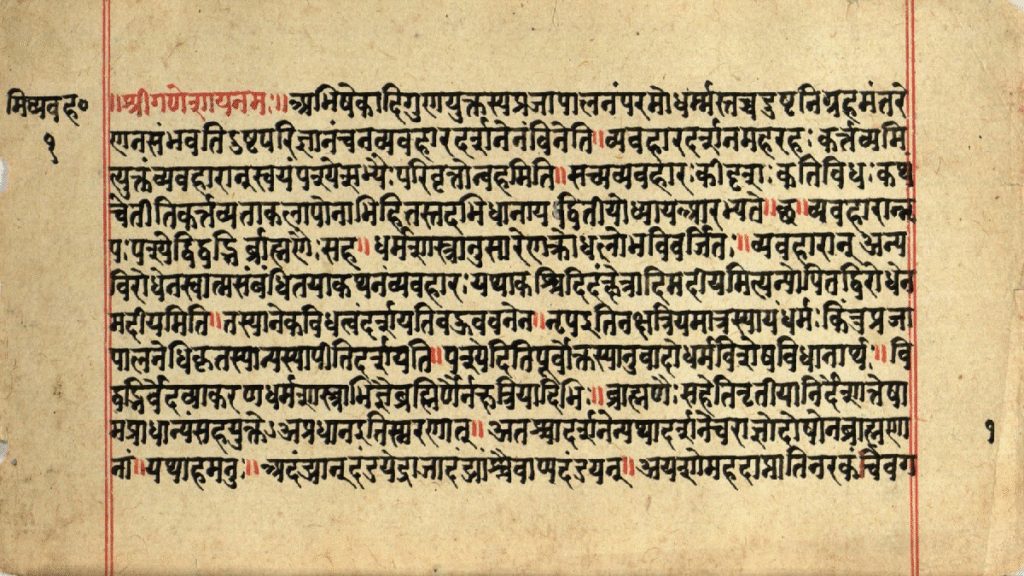 मिव्यवह०
१
॥श्रीगणेशायनमः॥अभिषेकादिगुणयुक्तस्यप्रजापालनंपरमोधर्म्मस्तच्चदुष्टनिग्रहमंतरे
णनसंभवतिदुष्टपरिज्ञानंचनव्यवहारदर्शनेनंविनेति॥व्यवहारदर्शनमहरहः कर्तव्यमि
त्युक्तंव्यवहारान्स्वयंपश्येत्सभ्यैःपरिवृत्तोन्वहमिति॥सचव्यवहारःकीदृशःकतिविधःकथं
चेतीतिकर्त्तव्यताकलापोनाभिहितस्तदभिधानाय द्वितीयोध्यायआरभ्यते॥छ॥व्यवहारान्नृ
पःपश्येद्विद्वद्भिर्ब्राह्मणैःसह॥धर्मशास्त्रानुसारेणक्रोधलोभविवर्जितः॥व्यवहारान् अन्य
विरोधेनस्वात्मसंबंधितयाकथनंव्यवहारःयथाकश्चिदिदंक्षेत्रादिमदीयमित्यन्योपितद्विरोधेन
मदीयमिति॥तस्यानेकविधत्वंदर्शयतिबहुवचनेन॥नृपइतिनक्षत्रियमात्रस्यायंधर्मःकिंतुप्रजा
पालनेधिकृतस्यान्यस्यापीतिदर्शयति॥पश्येदितिपूर्वोक्तस्यानुवादोधर्मविशेषविधानार्थः॥वि
द्वद्भिर्वेदव्याकरणधर्मशास्त्राभिज्ञैर्ब्राह्मणैर्नक्षत्रियादिभिः॥ब्राह्मणैःसहेतितृतीयानिर्देशात्तेषा
मप्राधान्यंसहयुक्तेऽअप्रधानइतिस्मरणात्॥अतश्चादर्शनेन्यथादर्शनेचराज्ञोदोषोनब्राह्मणा
नां॥यथाहमनुः॥अदंड्यान्दंडयेद्राजादंड्यांश्चैवाप्यदंडयन्॥अयशोमहदाप्नोतिनरकंचैवग
१